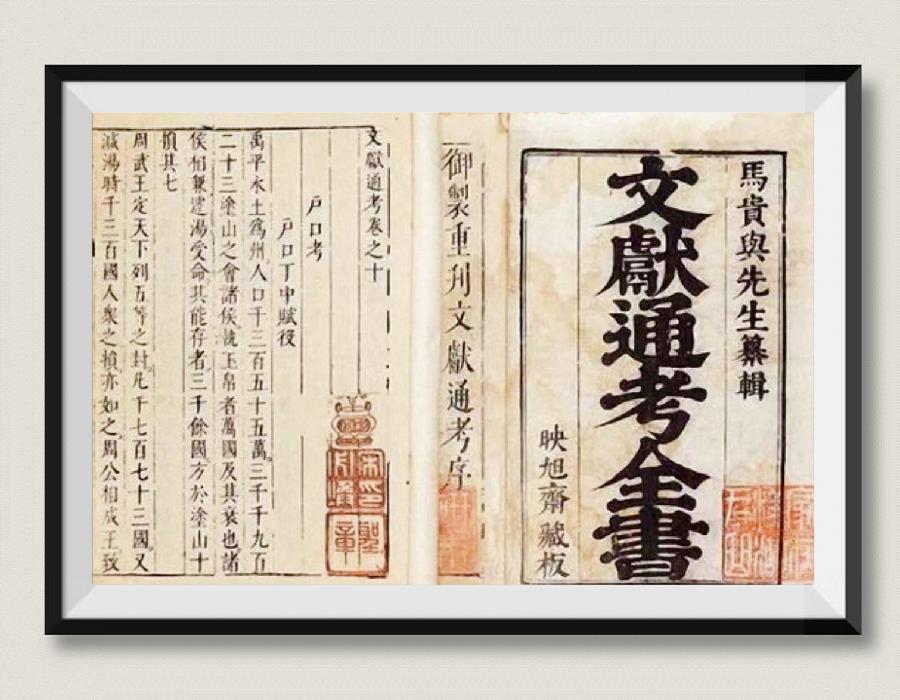 馬貴與先生纂輯
文獻通考全書
映旭齋藏板
御製重刊文獻通考序
文獻通考卷之十
戶口考
戶口丁中賦役
禹平水土爲州人口千三百五十五萬三千千九百
二十三塗山之會諸侯執玉帛者萬國及其衰也諸
侯相兼逮湯受命其能存者三千餘國方於塗山十
損其七
周武王定天下列五等之封凡千七百七十三國又
減湯時千三百國人衆之損亦如之周公相成王致